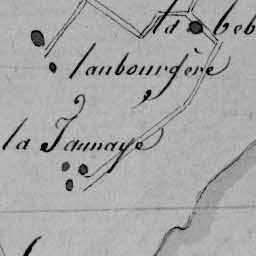 la Beb
laubourgère
la Jaunaye